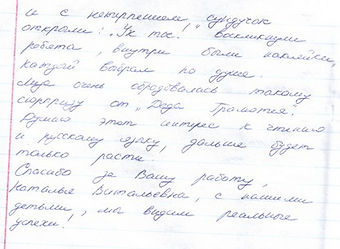 и с нетерпением, сундучок
открыли: "Ух ты!" воскликнули
ребята, внутри были наклейки,
каждый выбрал по душе.
очень обрадовалась такому
сюрпризу от "Деда Грамотея".
Думаю этот интерес к чтению
и русскому языку, дальше будет
только расти.
Спасибо за Вашу работу,
Наталья Витальевна, с нашими
детьми, мы видим реальные
успехи!